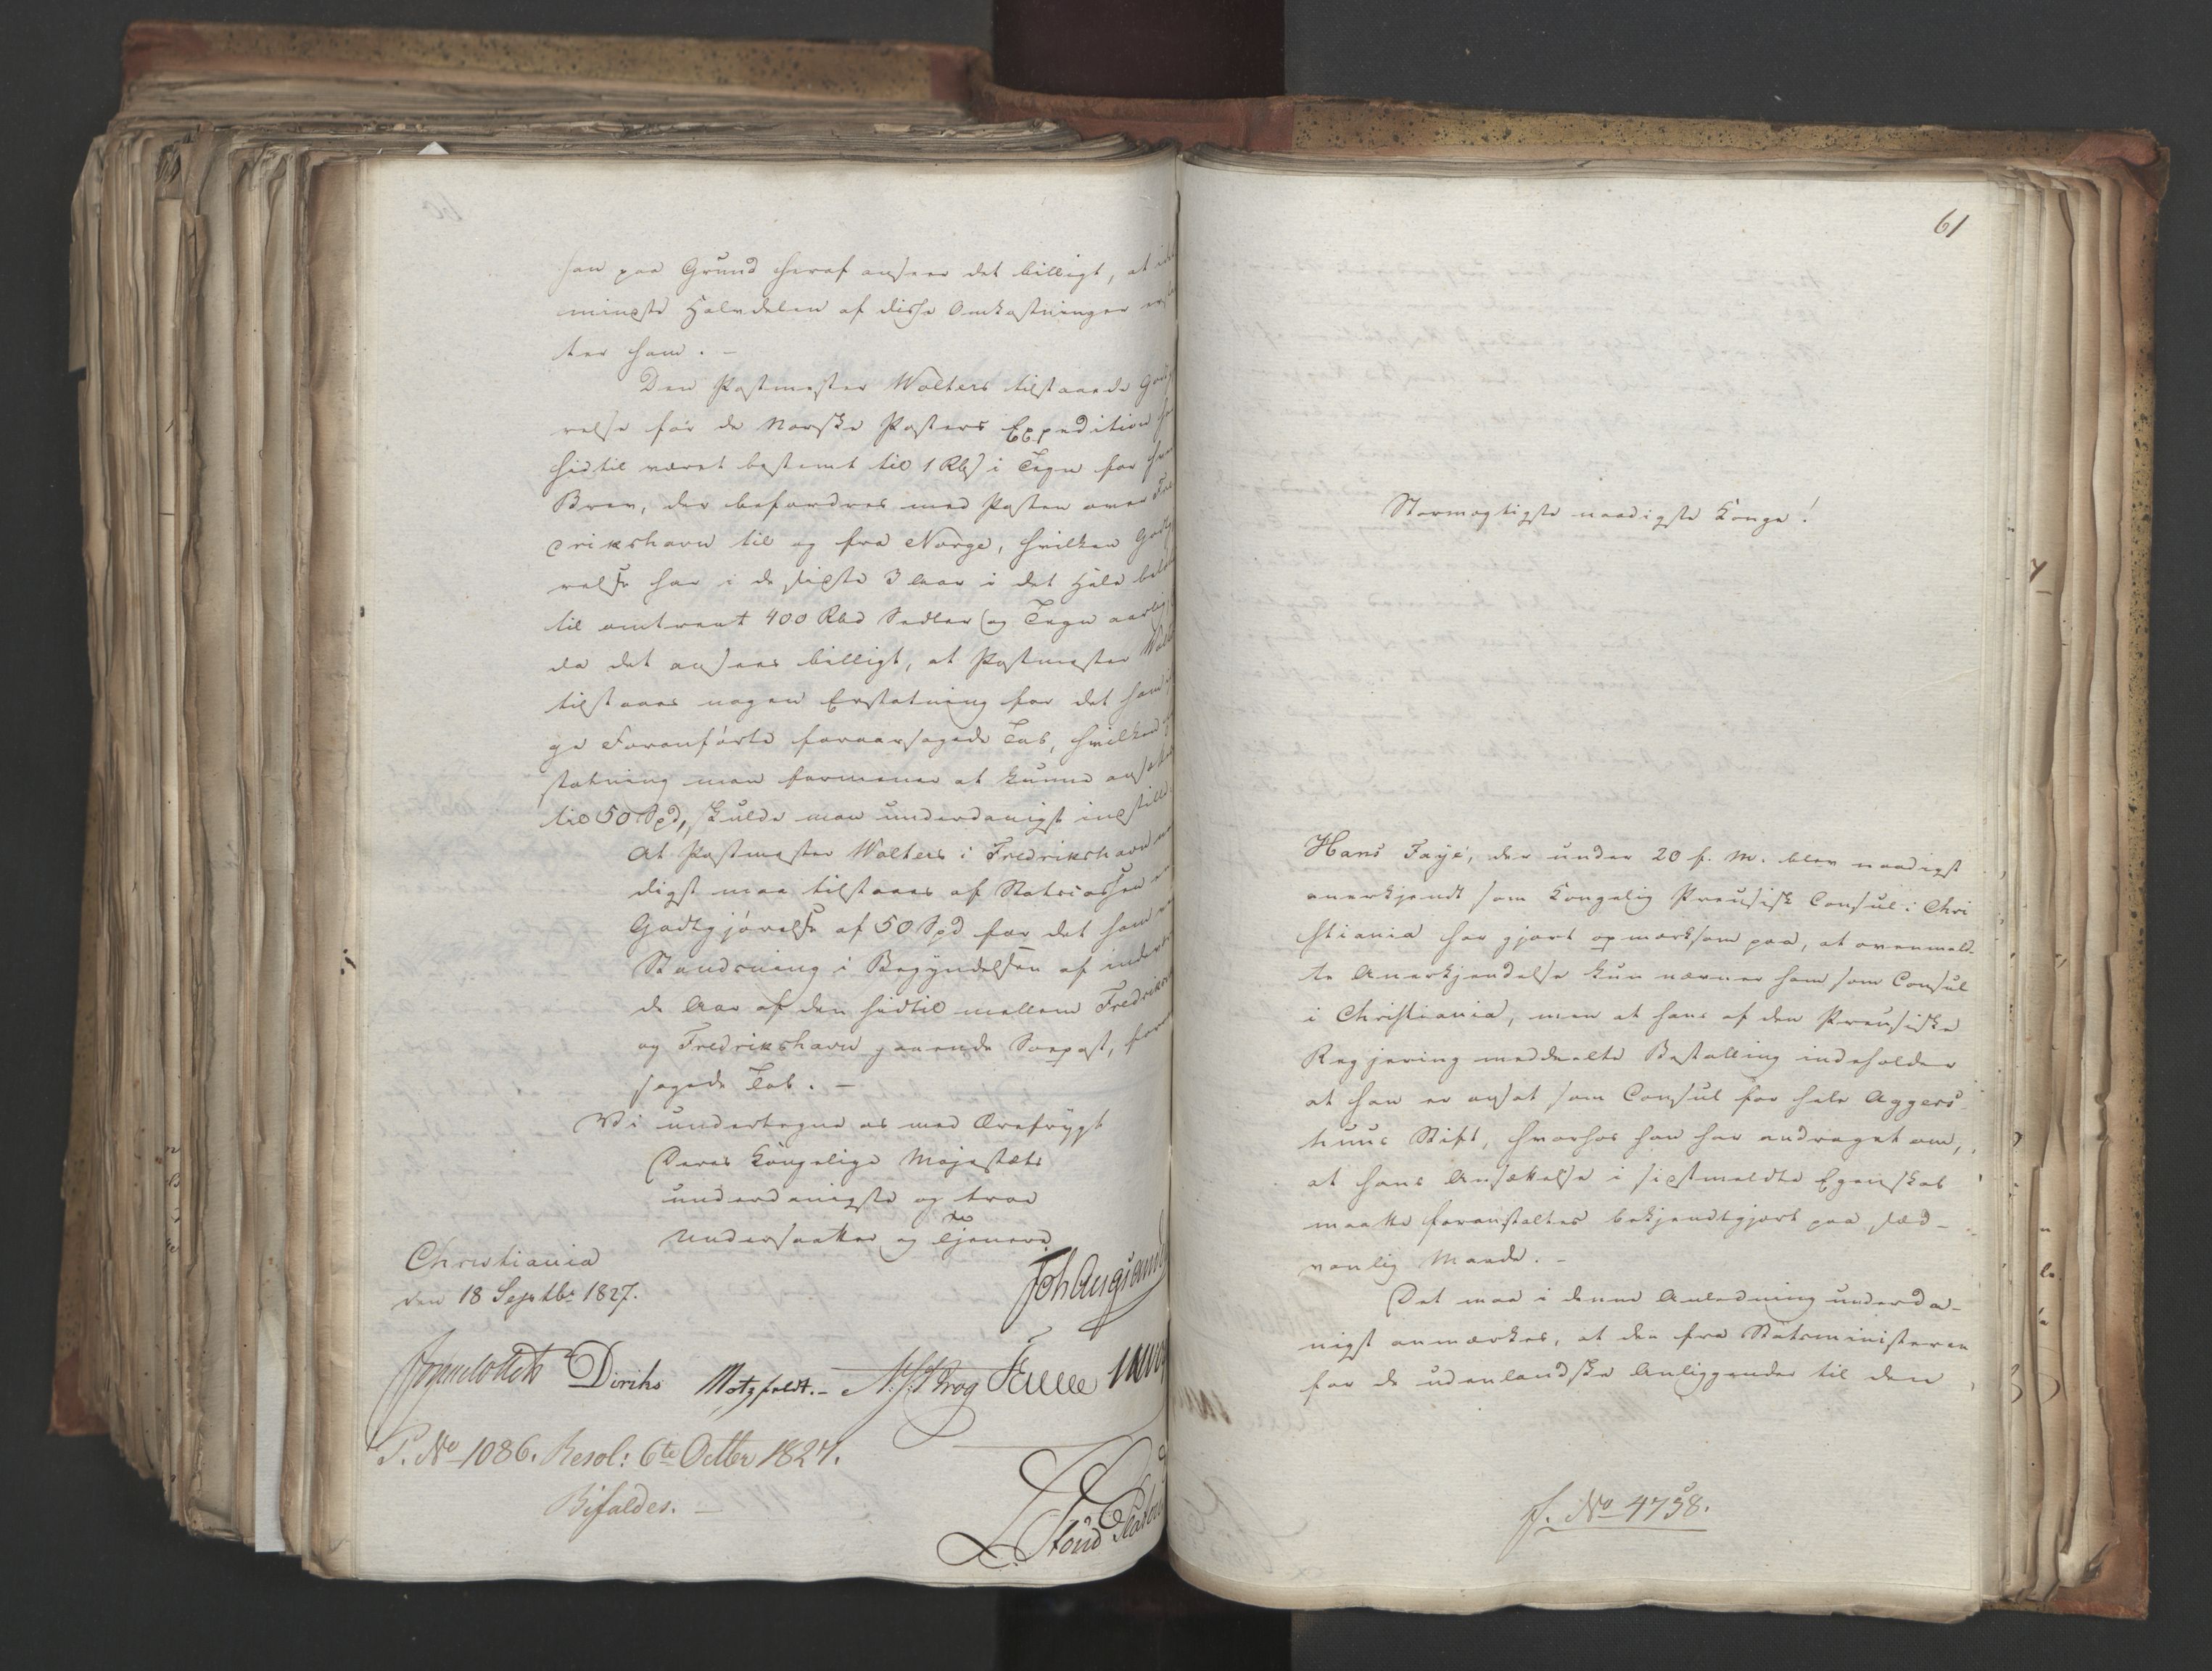 han paa Grund heraf ansees det billigt, at idet
mindste Halvdelen af disse Omkostninger erstat
tes ham. –
Den Postmester Wolters tilstaaede Godtgjø
relse for de Norske Posters Expedition har
hidtil været bestemt til 1 Rbs i Tegn for hvert
Brev, der befordres med Posten over Fre
drikshavn til og fra Norge, hvilken Godtgjø
relse har i de sidste 3 Aar i det Hele beløbet
til omtrent 400 Rbd Sedler og Tegn aarlig
da det ansees billigt, at Postmester Wolters
tilstaaes nogen Erstatning for det ham
ge Foranførte foraarsagede Tab, hvilken
statning man formener at kunne ansættes
til 50 Spd, skulde man underdanigst indstille
At Postmester Wolters i Fredrikshavn naa
digst maa tilstaaes af Statscassen en
Godtgjørelse af 50 Spd for det ham ved
Standsning i Begyndelsen af indeværen
de Aar af den hidtil mellem Fredriksværn
og Fredrikshavn gaaende Søepost, foraar
sagede Tab. –
Vi undertegne os med Ærefrygt
Deres Kongelige Majestæts
underdanigste og troe
Undersaatter og Tjenere
Christiania
den 18 Septbr 1827.
Joh Aug Sandels
Jonas Collett Diriks Motzfeldt. – Krog Fasting
P. No 1086. Resol: 6te Octbr 1827.
Bifaldes. –
61
Stormægtigste naadigste Konge!
Hans Faÿe, der under 20 f. M. blev naadigst
anerkjendt som Kongelig Preusisk Consul i Chri
stiania har gjort opmærksom paa, at ovenmeld-
te Anerkjendelse kun nævner ham som Consul
i Christiania, men at hans af den Preusiske
Regjering meddeelte Bestalling indeholder
at han er ansat som Consul for hele Aggers-
huus Stift, hvorhos han har andraget om,
at hans Ansættelse i sidstmeldte Egenskab
maatte foranstaltes bekjendtgjort paa sæd-
vanlig Maade. –
Det maa i denne Anledning underda-
nigst anmærkes, at den fra Statsministeren
for de udenlandske Anliggender til den
J. No 4758.